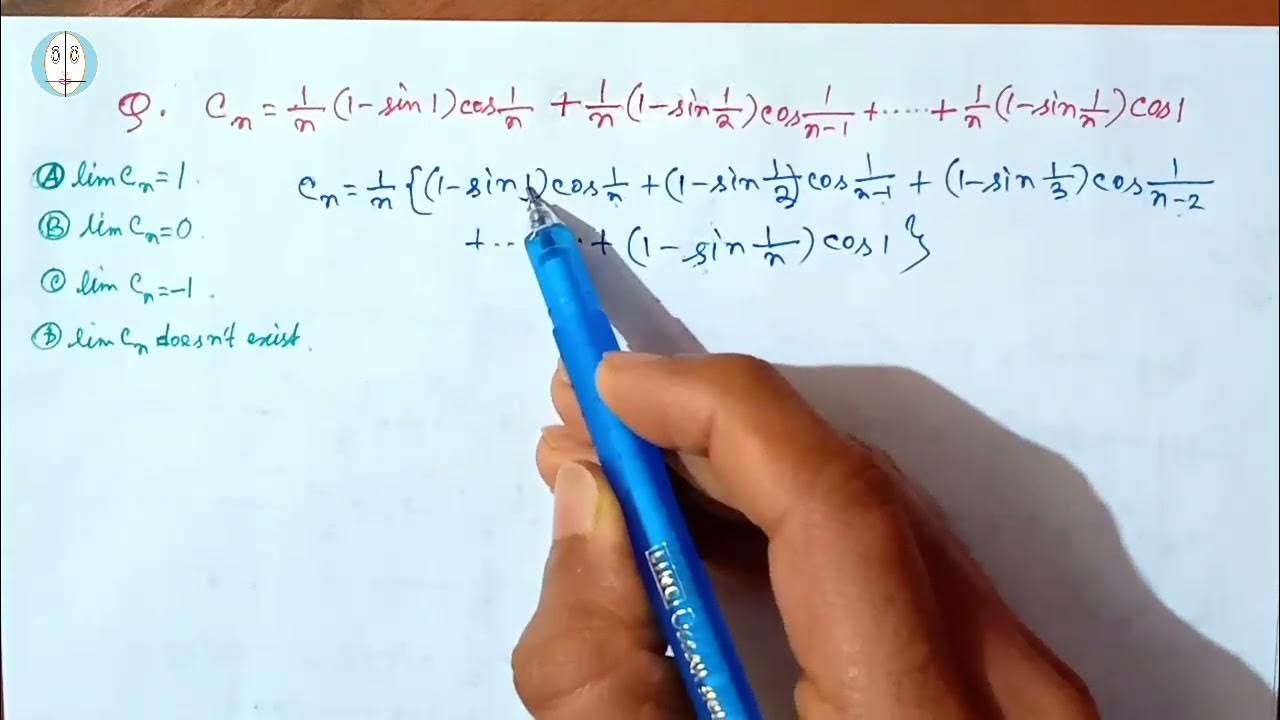 Q. Cₙ = 1/n (1 - sin 1) cos 1/n + 1/n (1 - sin 1/2) cos 1/(n-1) + ...... + 1/n (1 - sin 1/n) cos 1
Ⓐ lim Cₙ = 1.
Ⓑ lim Cₙ = 0.
Ⓒ lim Cₙ = -1.
Ⓓ lim Cₙ doesn't exist.
Cₙ = 1/n { (1 - sin 1) cos 1/n + (1 - sin 1/2) cos 1/(n-1) + (1 - sin 1/3) cos 1/(n-2)
+ ... . + (1 - sin 1/n) cos 1 }
LINC Ocean